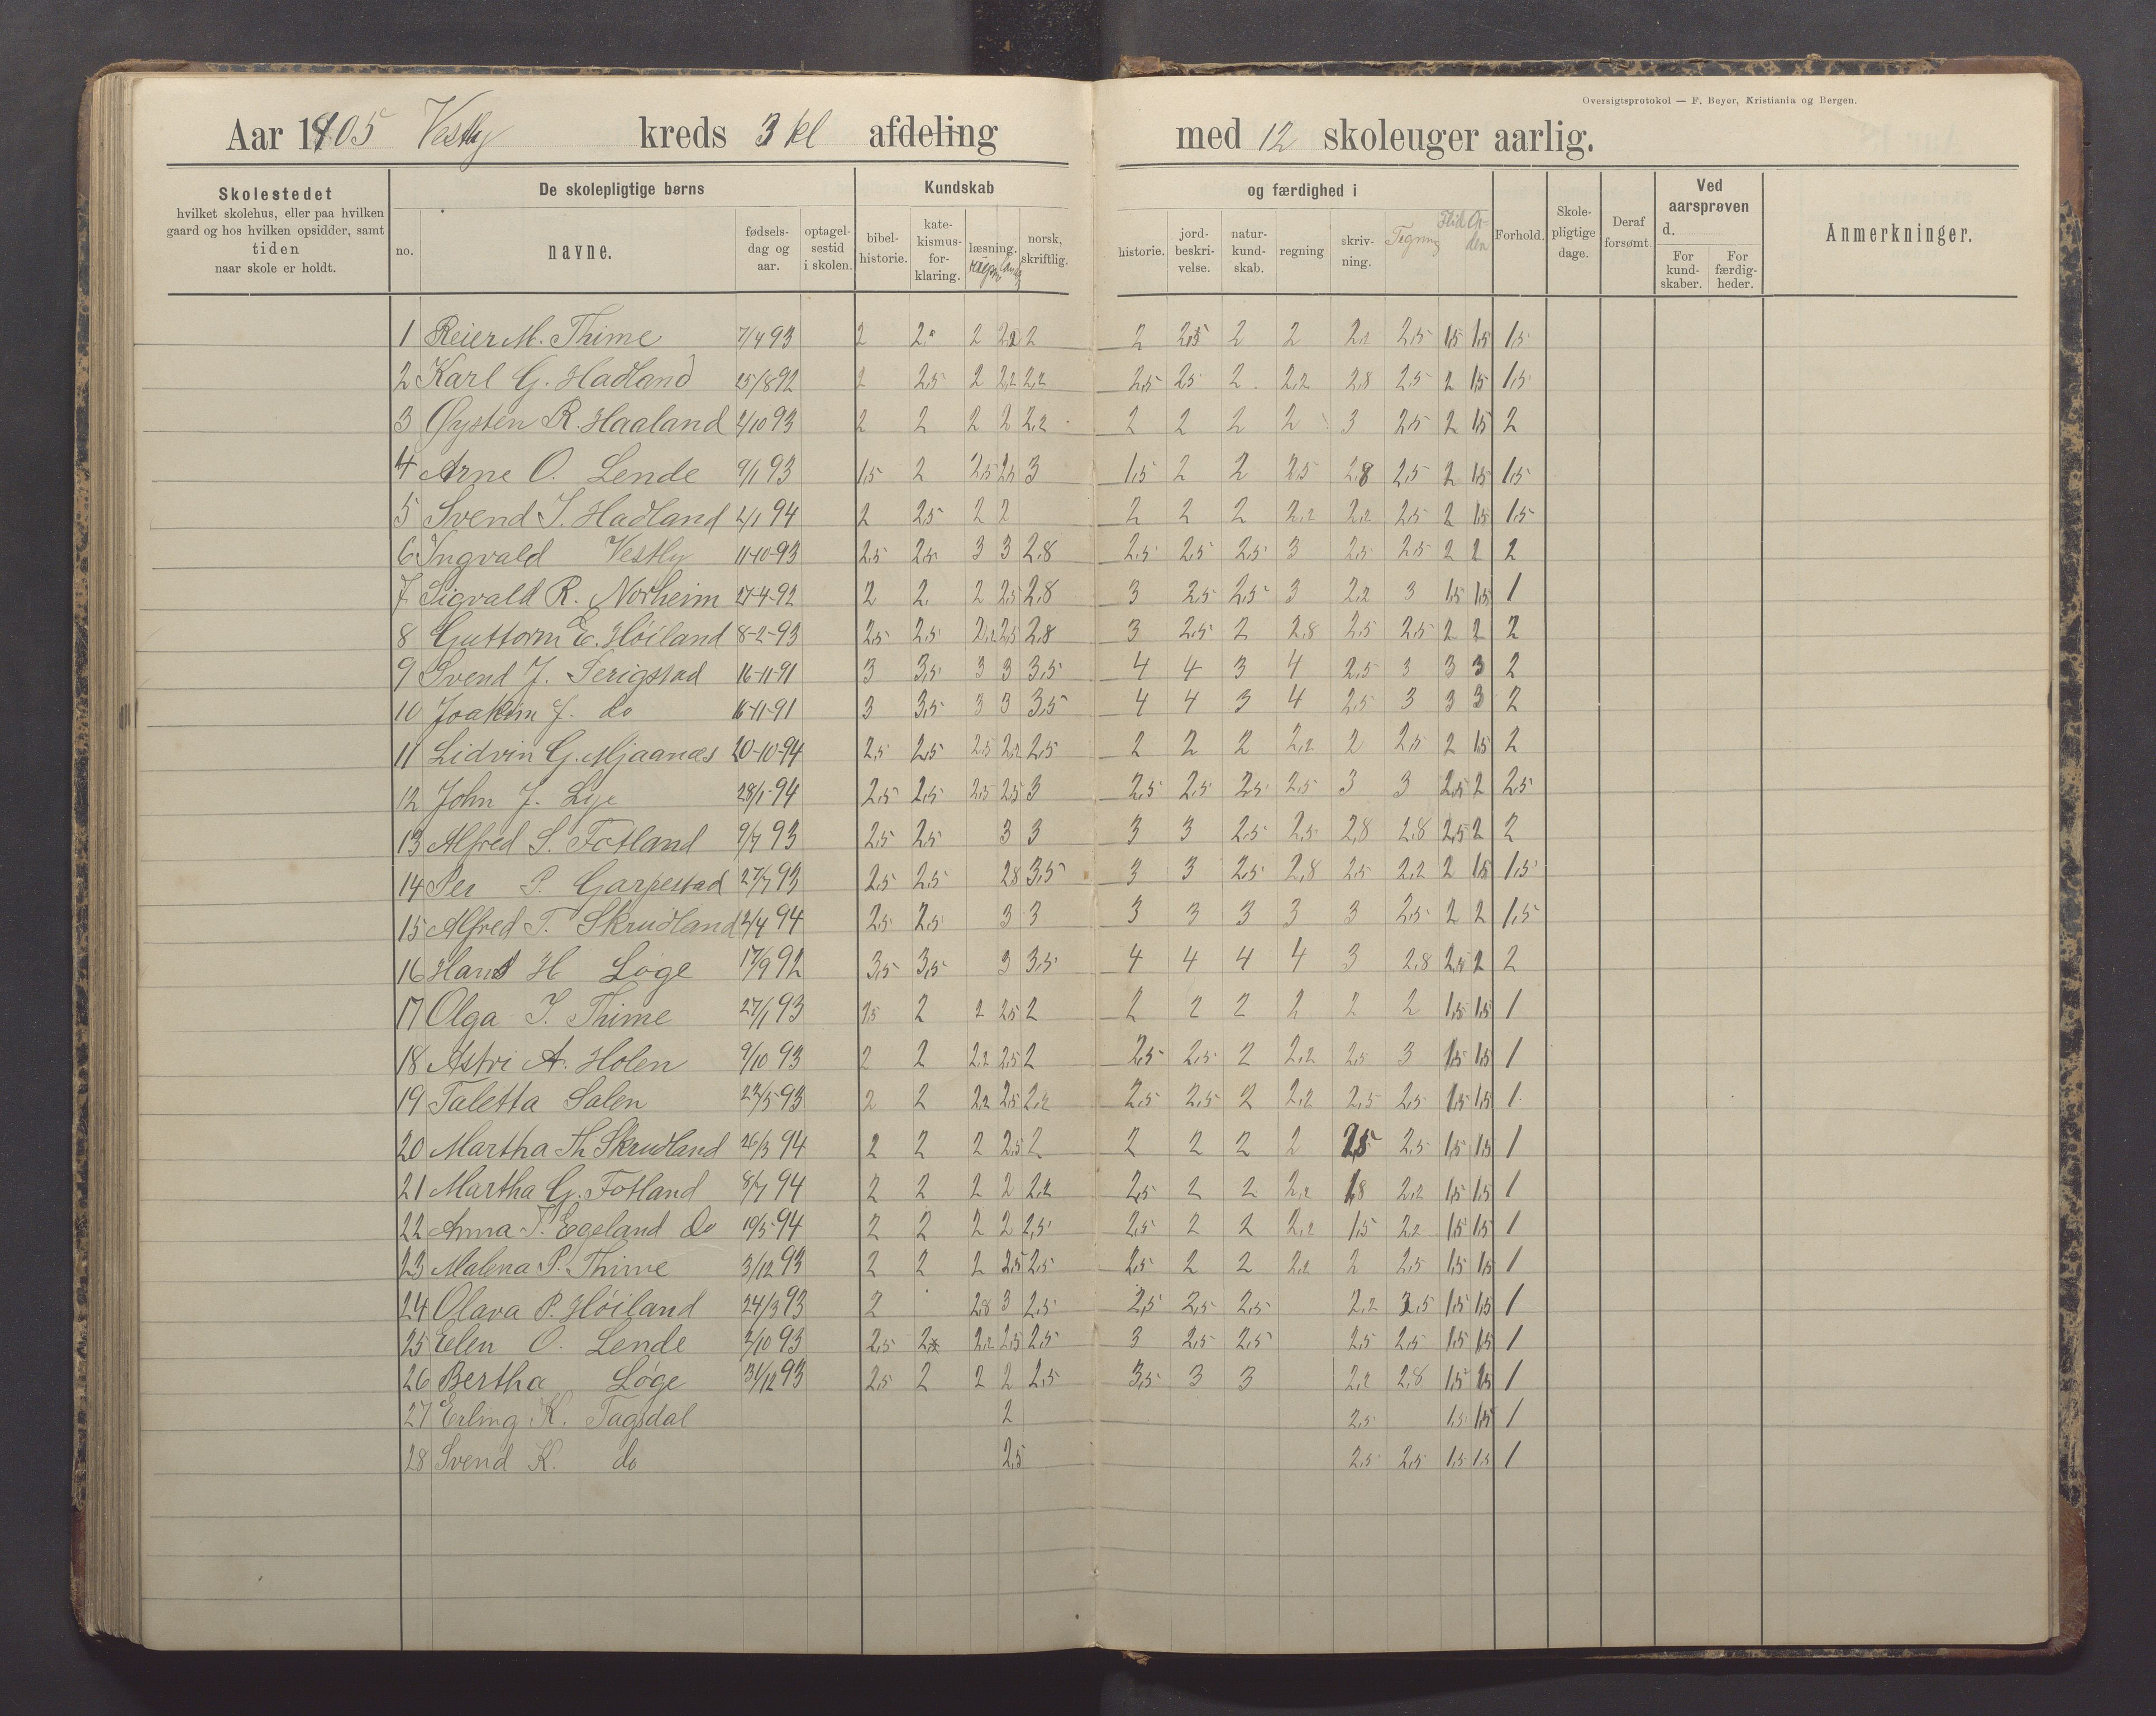 Oversigtsprotokol — F. Beyer, Kristiania og Bergen.
Aar 1905 Vestly kreds 3 kl afdeling med 12 skoleuger aarlig.
Skolestedet hvilket skolehus, eller paa hvilken gaard og hos hvilken opsidder, samt tiden naar skole er holdt.
De skolepligtige børns
no. navne. fødsels-dag og aar. optagel-sestid i skolen.
Kundskab og færdighed i
bibel-historie. kate-kismus-for-klaring. læsning. norsk, skriftlig. historie. jord-beskri-velse. natur-kund-skab. regning skriv-ning. Tegning Flid Or-den
Forhold. Skole-pligtige dage. Deraf forsømt. Ved aarsprøven d. For kund-skaber. For færdig-heder. Anmerkninger.
1 Reier M. Thime 7/4 93 2 2 2 2,2 2 2 2,5 2 2 2,2 2,5 1,5 1,5 1,5
2 Karl G. Hadland 25/8 92 2 2,5 2 2,2 2,2 2,5 2,5 2 2,2 2,8 2,5 2 1,5 1,5
3 Øysten R. Haaland 2/10 93 2 2 2 2 2,2 2 2 2 2 3 2,5 2 1,5 2
4 Arne O. Lende 9/1 93 1,5 2 2,5 2,5 3 1,5 2 2 2,5 2,8 2,5 2 1,5 1,5
5 Svend J. Hadland 2/1 94 2 2,5 2 2 2 2 2 2,2 2,2 2,5 2 1,5 1,5
6 Ingvald Vestly 11-10-93 2,5 2,5 3 3 2,8 2,5 2,5 2,5 3 2,5 2,5 2 2 2
7 Sigvald R. Norheim 27-4-92 2 2 2 2,5 2,8 3 2,5 2,5 3 2,2 3 1,5 1,5 1
8 Guttorm E. Høiland 8-2-93 2,5 2,5 2,2 2,5 2,8 3 2,5 2 2,8 2,5 2,5 2 2 2
9 Svend J. Serigstad 16-11-91 3 3,5 3 3 3,5 4 4 3 4 2,5 3 3 3 2
10 Joakim J. do 16-11-91 3 3,5 3 3 3,5 4 4 3 4 2,5 3 3 3 2
11 Lidvin G. Mjaanæs 20-10-94 2,5 2,5 2,5 2,2 2,5 2 2 2 2,2 2 2,5 2 1,5 2
12 John J. Lye 28/1-94 2,5 2,5 2,5 2,5 3 2,5 2,5 2,5 2,5 3 3 2,5 2 2,5
13 Alfred S. Fotland 9/7 93 2,5 2,5 3 3 3 3 2,5 2,5 2,8 2,8 2,5 2 2
14 Per P. Garpestad 27/7 93 2,5 2,5 2,8 3,5 3 3 2,5 2,8 2,5 2,2 2 1,5 1,5
15 Alfred T. Skrudland 2/4 94 2,5 2,5 3 3 3 3 3 3 3 2,5 2 2 1,5
16 Hans H Løge 17/9 92 3,5 3,5 3 3,5 4 4 4 4 3 2,8 2,5 2 2
17 Olga J. Thime 27/1 93 2,5 2 2 2,5 2 2 2 2 2 2 2 1,5 1,5 1
18 Astri A. Holen 9/10 93 2 2 2,2 2,5 2 2,5 2,5 2 2,2 2,5 3 1,5 1,5 1
19 Taletta Salen 22/5 93 2 2 2,2 2,5 2,2 2,5 2,5 2 2,2 2,5 2,5 1,5 1,5 1
20 Martha Th Skrudland 26/3 94 2 2 2 2,5 2 2 2 2 2 2,5 2,5 1,5 1,5 1
21 Martha G. Fotland 8/7 94 2 2 2 2 2,2 2,5 2 2 2,2 1,8 2,2 1,5 1,5 1
22 Anna T. Egeland do 19/5 94 2 2 2 2 2,5 2,5 2 2 2,2 1,5 2,2 1,5 1,5 1
23 Malena P. Thime 3/12 93 2 2 2 2,5 2,5 2,5 2 2 2,2 2 2,5 1,5 1,5 1
24 Olava P. Høiland 24/3 93 2 2,8 3 2,5 2,5 2,5 2,5 2,2 2,5 1,5 1,5 1
25 Elen O. Lende 2/10 93 2,5 2,2 2,5 2,5 3 2,5 2,5 2,5 2,5 1,5 1,5 1
26 Bertha Løge 31/12 93 2,5 2 2 2 2,5 3,5 3 3 2,2 2,8 1,5 1,5 1
27 Erling K. Tagsdal 2 2,5 1,5 1,5 1
28 Svend K. do 2,5 2,5 2,5 1,5 1,5 1